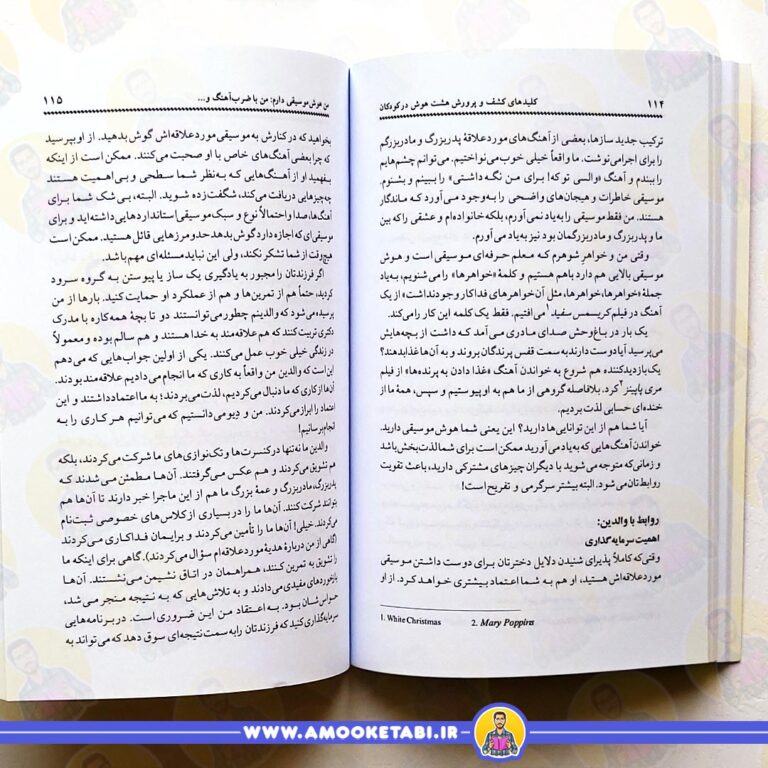 ۱۱۴
کلیدهای کشف و پرورش هشت هوش در کودکان
ترکیب جدید سازها، بعضی از آهنگ‌های مورد علاقهٔ پدربزرگ و مادربزرگم
را برای اجرا می‌نوشت. ما واقعاً خیلی خوب می‌نواختیم. می‌توانم چشم‌هایم
را ببندم و آهنگ «والسی توکه! برای من نگه داشتی» را ببینم و بشنوم.
موسیقی خاطرات و هیجان‌های واضحی را به‌وجود می‌آورد که ماندگار
هستند. من فقط موسیقی را به یاد نمی آورم، بلکه خانواده‌ام و عشقی را که بین
ما و پدربزرگ و مادربزرگمان بود نیز به یاد می آورم.
وقتی من و خواهر شوهرم که معلم حرفه‌ای موسیقی است و هوش
موسیقی بالایی هم دارد باهم هستیم و کلمهٔ «خواهرها» را می شنویم، به‌یاد
جملهٔ «خواهرها، خواهرها، مثل آن خواهرهای فداکار وجود نداشت» از یک
آهنگ در فیلم کریسمس سفید۱ می‌افتیم. فقط یک کلمه این کار را می‌کند.
یک بار در باغ‌وحش صدای مادری می‌آمد که داشت از بچه‌هایش
می‌پرسید آیا دوست دارند به سمت قفس پرندگان بروند و به آن‌ها غذا بدهند؟
یک بازدیدکننده هم شروع به خواندن آهنگ «غذا دادن به پرنده‌ها» از فیلم
مری پاپینز۲ کرد. بلافاصله گروهی از ما هم به او پیوستیم و سپس، همهٔ ما از
خنده‌ای حسابی لذت بردیم.
آیا شما هم از این توانایی‌ها دارید؟ این یعنی شما هوش موسیقی دارید.
خواندن آهنگ‌هایی که به‌یاد می‌آورید ممکن است برای شما لذت‌بخش باشد
و زمانی که متوجه می‌شوید با دیگران چیزهای مشترکی دارید، باعث تقویت
روابط‌تان می‌شود. البته بیشتر سرگرمی و تفریح است!
روابط با والدین:
اهمیت سرمایه‌گذاری
وقتی که کاملاً پذیرای شنیدن دلایل دخترتان برای دوست داشتن موسیقی
مورد علاقه‌اش هستید، او هم به شما اعتماد بیشتری خواهد کرد. از او
1. White Christmas 2. Mary Poppins
من هوش موسیقی دارم: من با ضرب آهنگ و...
۱۱۵
بخواهید که در کنارش به موسیقی مورد علاقه‌اش گوش بدهید. از او بپرسید
که چرا بعضی آهنگ‌های خاص با او صحبت می‌کنند. ممکن است از اینکه
بفهمید او از آهنگ‌هایی که به‌نظر شما سطحی و بی‌اهمیت هستند
چه‌چیزهایی دریافت می‌کند، شگفت‌زده شوید. البته، بی شک شما برای
آهنگ‌ها، صدا و احتمالاً نوع و سبک موسیقی استانداردهایی داشته‌اید و برای
موسیقی‌ای که اجازه دارد گوش بدهد حدومرزهایی قائل هستید. ممکن است
هیچ‌وقت از شما تشکر نکند، ولی این نباید مسئله‌ای مهم باشد.
اگر فرزندتان را مجبور به یادگیری یک ساز یا پیوستن به گروه سرود
کردید، حتماً هم از تمرین‌ها و هم از عملکرد او حمایت کنید. بارها از من
پرسیده می‌شود که والدینم چطور می‌توانستند دو تا بچهٔ همه‌کاره با مدرک
دکتری تربیت کنند که هم علاقه‌مند به خدا هستند و هم سالم بوده و معمولاً
در زندگی خیلی خوب عمل می‌کنند. یکی از اولین جواب‌هایی که می‌دهم
این است که والدین من واقعاً به کاری که ما انجام می دادیم علاقه‌مند بودند.
آن‌ها از کاری که ما دنبال می‌کردیم، لذت می‌بردند؛ به ما اعتماد داشتند و این
اعتماد را ابراز می‌کردند. من و دیو می‌دانستیم که می‌توانیم هر کاری را به
انجام برسانیم!
والدین ما نه‌تنها در کنسرت‌ها و تک‌نوازی‌های ما شرکت می‌کردند، بلکه
هم تشویق می‌کردند و هم عکس می‌گرفتند. آن‌ها مطمئن می شدند که
پدربزرگ، مادربزرگ و عمهٔ بزرگ ما هم از این ماجرا خبر دارند تا آن‌ها هم
بتوانند شرکت کنند. آن‌ها ما را در بسیاری از کلاس‌های خصوصی ثبت‌نام
می‌کردند. خیلی! آن‌ها ما را تأمین می‌کردند و برایمان فداکاری می‌کردند
(گاهی از من دربارهٔ هدیهٔ مورد علاقه‌ام سؤال می‌کردند). گاهی برای اینکه ما
را تشویق به تمرین کنند، همراهمان در اتاق نشیمن می نشستند. آن‌ها
بازخوردهای مفیدی می‌دادند و به تلاش‌هایی که به نتیجه منجر می‌شد،
حواس‌شان بود. به اعتقاد من این ضروری است. در برنامه‌هایی
سرمایه‌گذاری کنید که فرزندتان را به سمت نتیجه‌ای سوق دهد که می‌تواند به
WWW.AMOOKETABI.IR